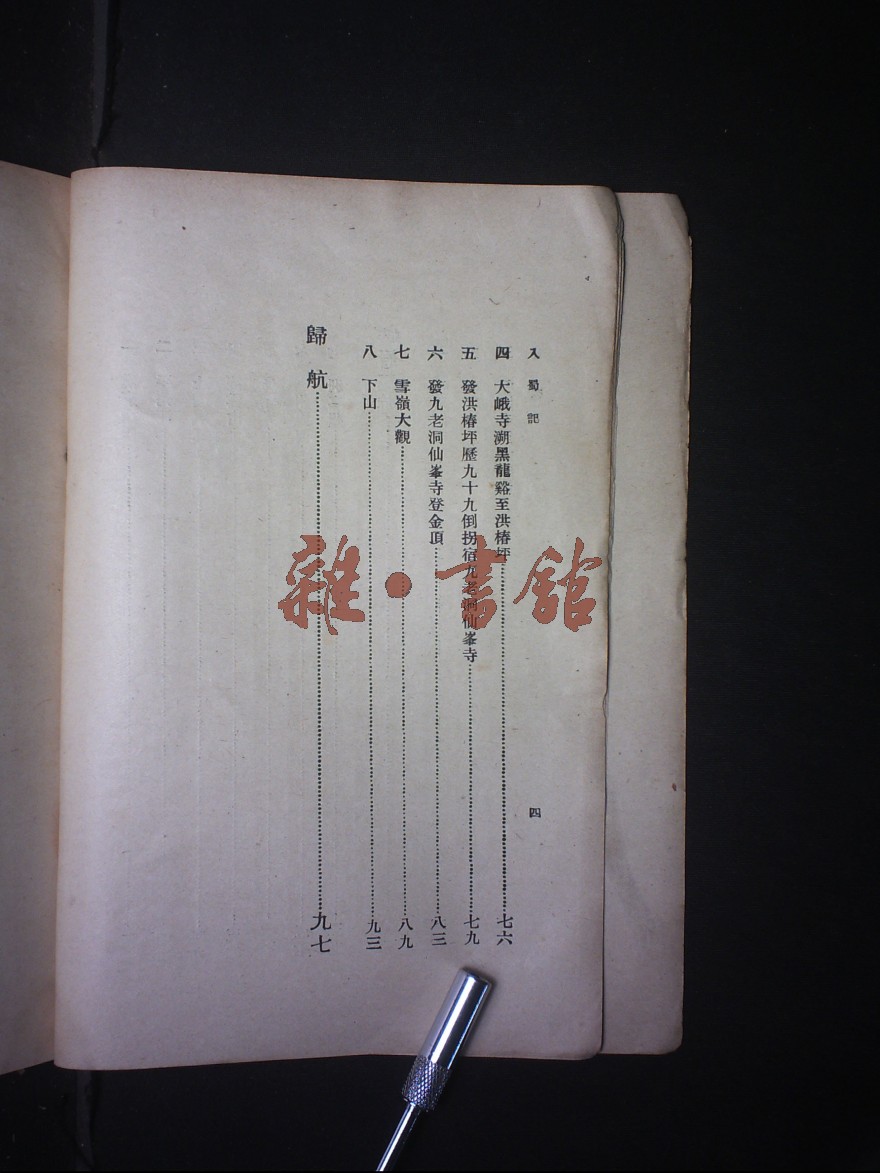 入蜀記
四
四 大峨寺溯黑龍谿至洪椿坪……七六
五 發洪椿坪歷九十九倒拐宿九老洞仙峯寺……七九
六 發九老洞仙峯寺登金頂……八三
七 雪嶺大觀……八九
八 下山……九三
歸航……九七
雜·書館